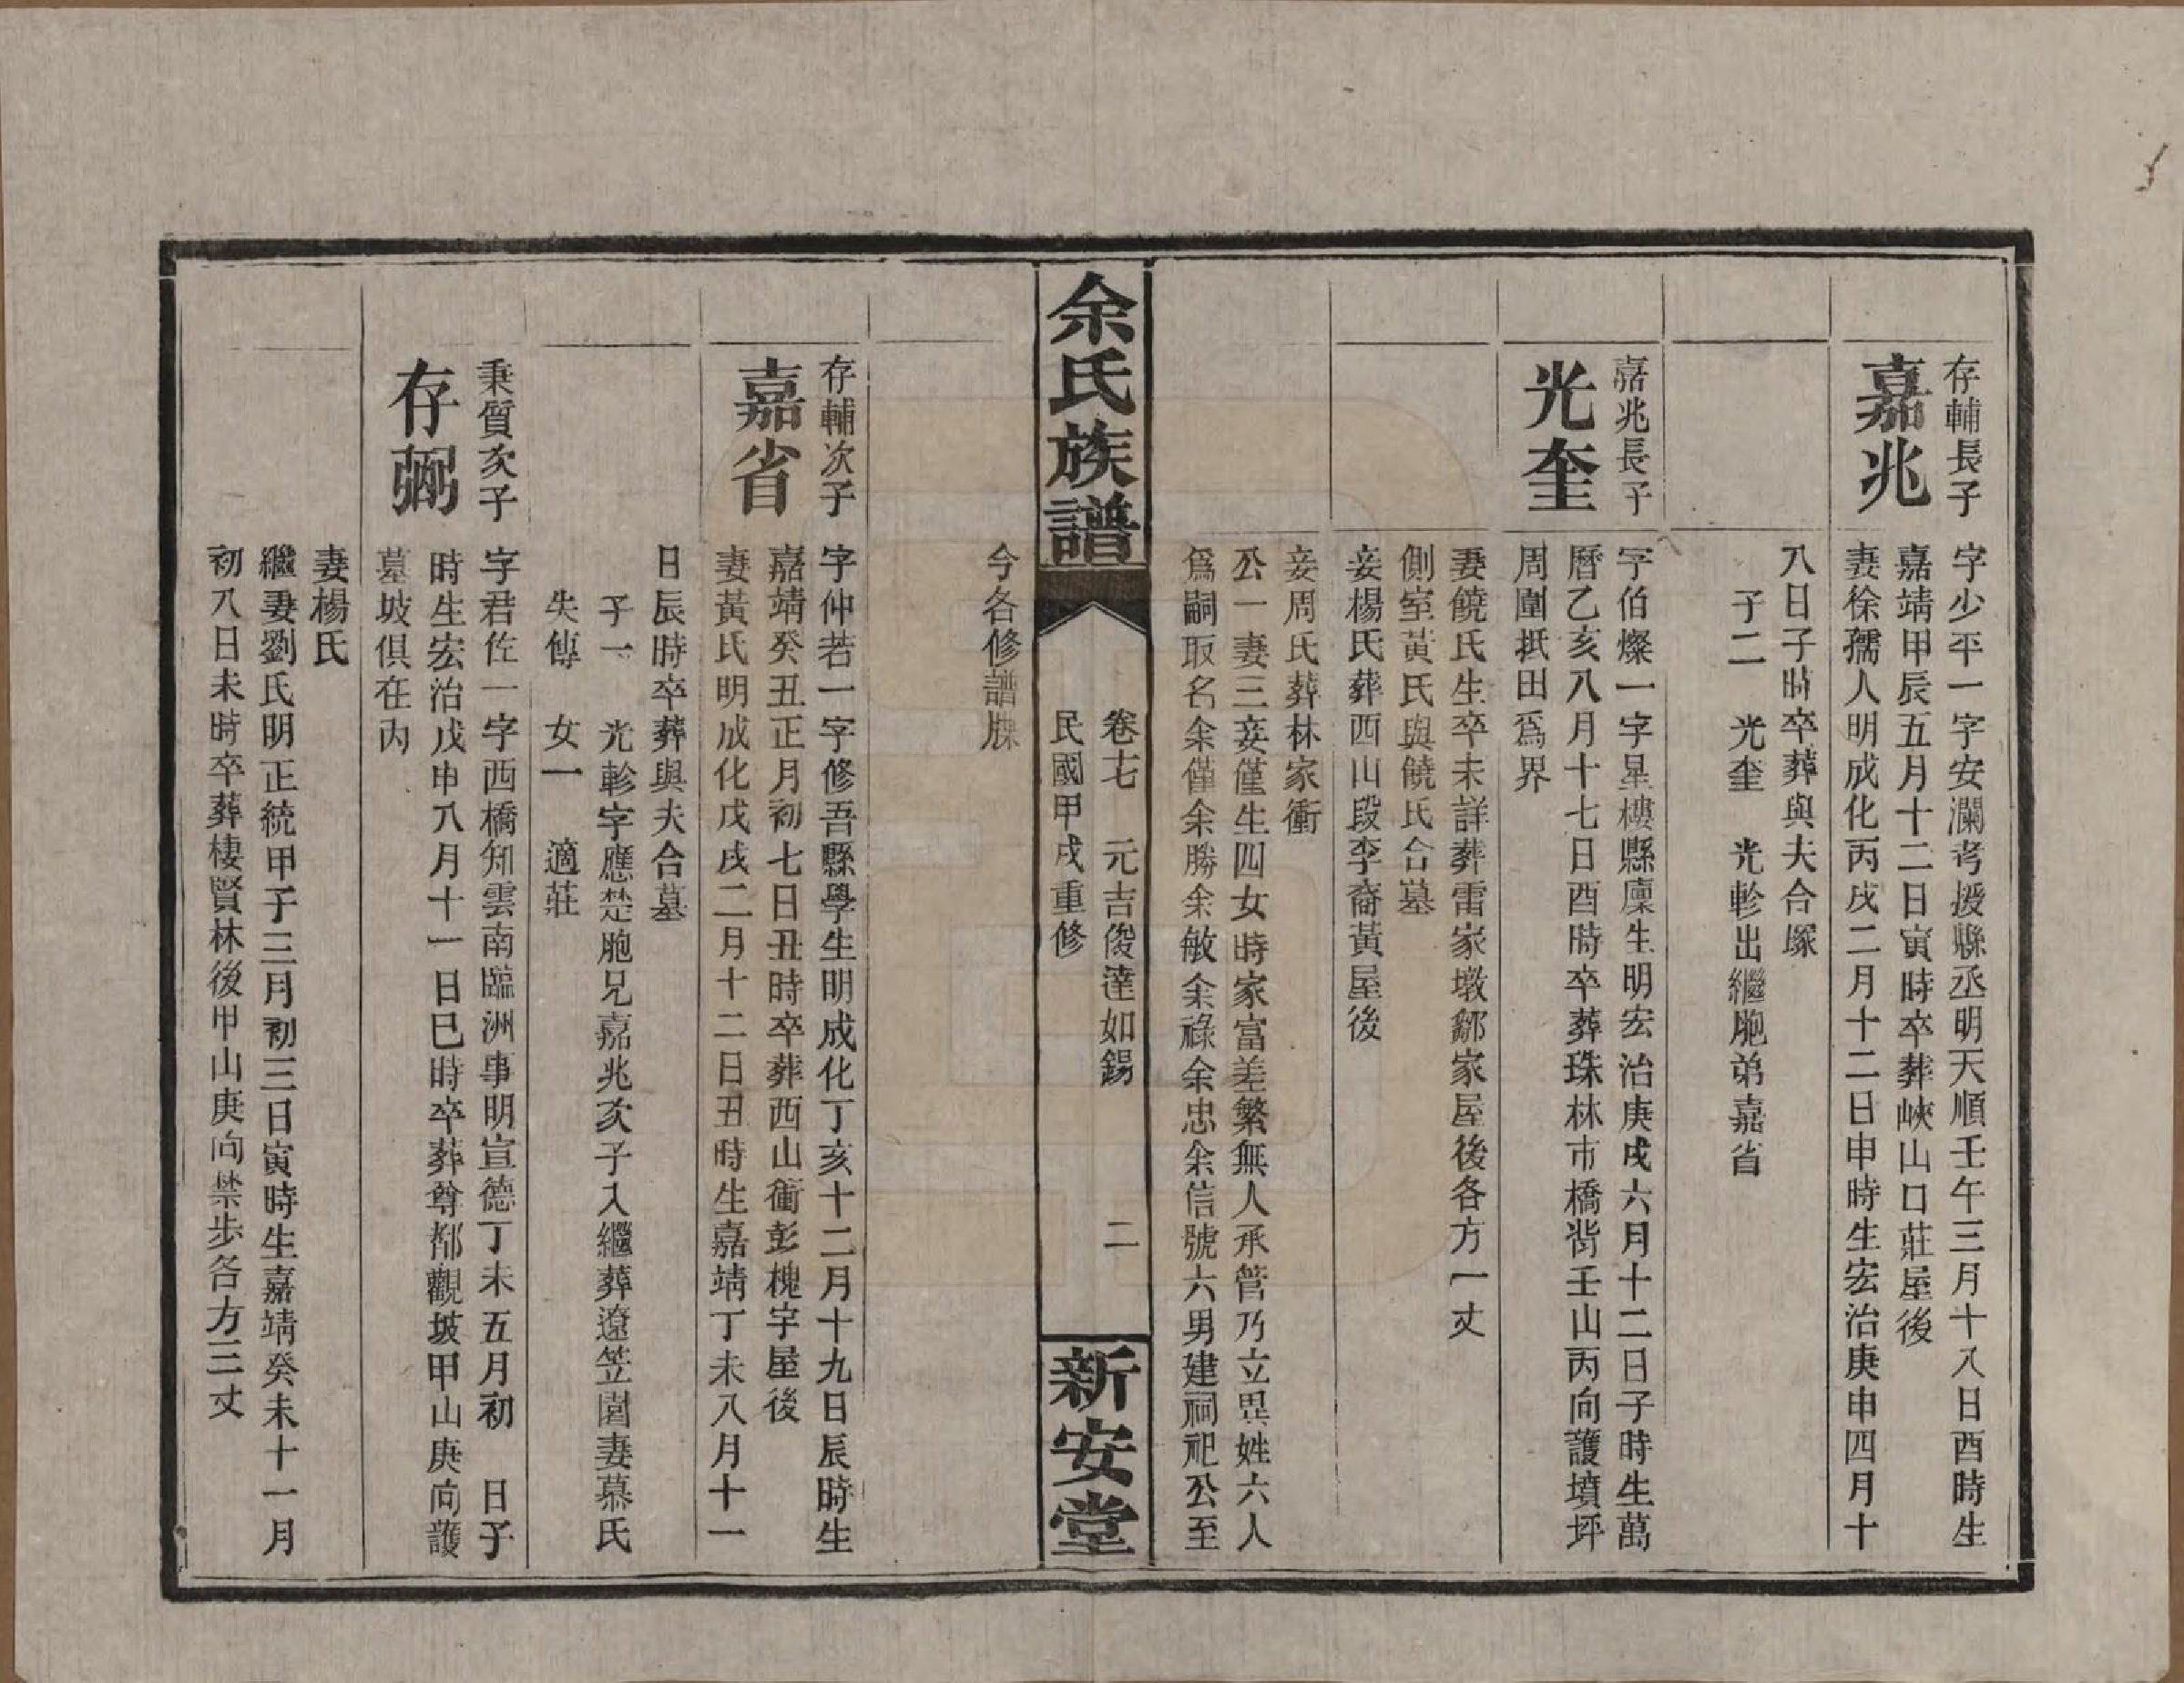 存輔長子
嘉兆
字少平一字安瀾考授縣丞明天順壬午三月十八日酉時生
嘉靖甲辰五月十二日寅時卒葬峽山口莊屋後
妻徐孺人明成化丙戌二月十二日申時生宏治庚申四月十
八日子時卒葬與夫合塚
子二 光奎 光軫出繼胞弟嘉省
嘉兆長子
光奎
字伯燦一字星樓縣廩生明宏治庚戌六月十二日子時生萬
曆乙亥八月十七日酉時卒葬珠林市橋背壬山丙向護墳坪
周圍抵田爲界
妻饒氏生卒未詳葬雷家墩鄒家屋後各方一丈
側室黃氏與饒氏合墓
妾楊氏葬西山段李裔黃屋後
妾周氏葬林家衝
公一妻三妾僅生四女時家富差繁無人承管乃立異姓六人
爲嗣取名余僅余勝余敏余祿余忠余信號六男建祠祀公至
余氏族譜
卷七 元吉俊達如錫 二
民國甲戌重修
新安堂
今各修譜牒
存輔次子
嘉省
字仲若一字修吾縣學生明成化丁亥十二月十九日辰時生
嘉靖癸丑正月初七日丑時卒葬西山衝彭槐宇屋後
妻黃氏明成化戊戌二月十二日丑時生嘉靖丁未八月十一
日辰時卒葬與夫合墓
子一 光軫字應楚胞兄嘉兆次子入繼葬遼笠園妻慕氏
失傳 女一 適莊
秉質次子
存弼
字君佐一字西橋知雲南臨洲事明宣德丁未五月初 日子
時生宏治戊申八月十一日巳時卒葬尊都觀坡甲山庚向護
墓坡俱在內
妻楊氏
繼妻劉氏明正統甲子三月初三日寅時生嘉靖癸未十一月
初八日未時卒葬棲賢林後甲山庚向禁步各方三丈